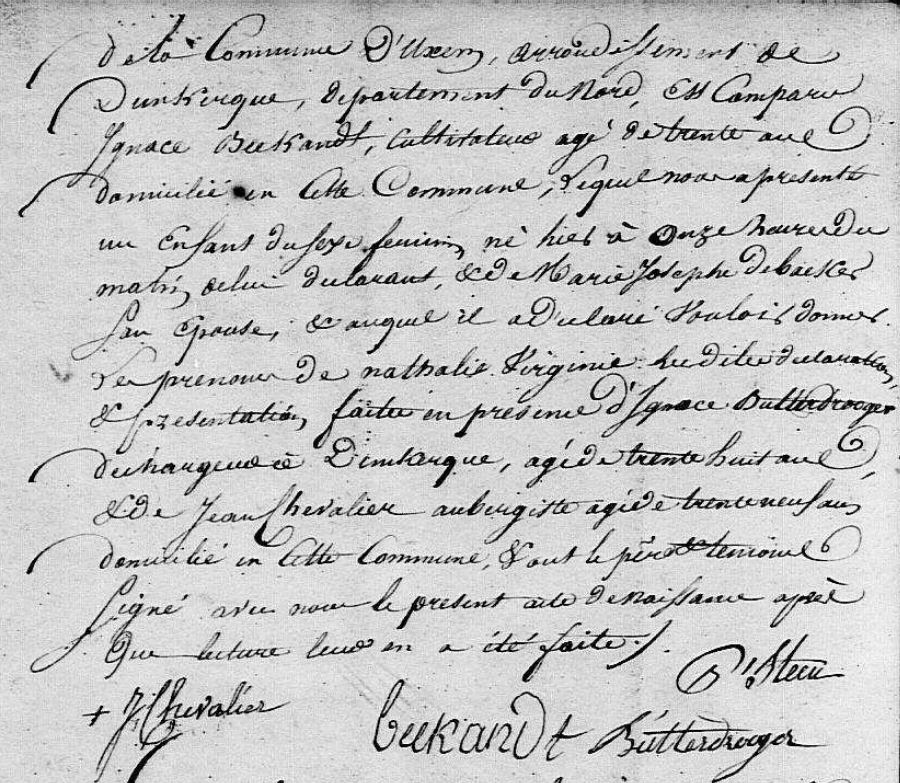 de la Commune D'Uxem, arrondissement de
Dunkerque, département du Nord, Est Comparu
Ignace Beekandt, cultivateur agé de trente ans
domicilié en cette Commune, lequel nous a présenté
un Enfant du sexe feminin, né hier à Onze heures du
matin, de lui declarant, & de Marie Josephe debacker
son Epouse, & auquel il a Declaré Vouloir donner
Les prenoms de nathalie Virginie. les dites declaration,
& présentation, faite en présence d'Ignace Butterdroeger
dechargeur à Dunkerque, agé de trente huit ans,
& de Jean Chevalier aubergiste agé de trente neuf ans
domicilié en cette Commune, & ont le père & temoins
Signé avec nous le présent acte de naissance après
Que lecture leur en a été faite./
+ J Chevalier
beekandt Butterdroeger